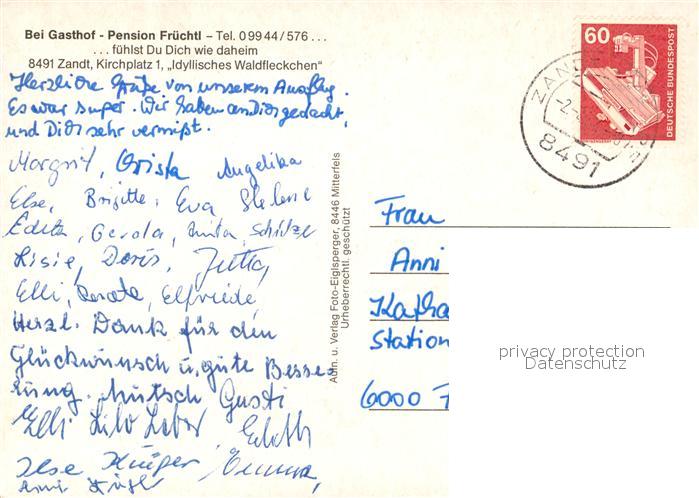 Bei Gasthof - Pension Früchtl – Tel. 0 99 44 / 576 . . .
. . . fühlst Du Dich wie daheim
8491 Zandt, Kirchplatz 1, „Idyllisches Waldfleckchen"
Herzliche Grüße von unserem Ausflug.
Es war super. Wir haben an Dich gedacht,
und Dich sehr vermißt.
Margrit, Christa Angelika
Else, Brigitte, Eva
Edith, Gerda, Anita,
Lisie, Doris, Jutta,
Elli, Renate, Elfriede,
Herzl. Dank für den
Glückwunsch u. gute Besse-
rung. Gusti
Elli Edith
Ilse Emma,
Aufn. u. Verlag Foto-Eiglsperger, 8446 Mitterfels
Urheberrechtl. geschützt
60
DEUTSCHE BUNDESPOST
ZANDT
8491
Frau
Anni
Katha
Station
6000 F
privacy protection
Datenschutz